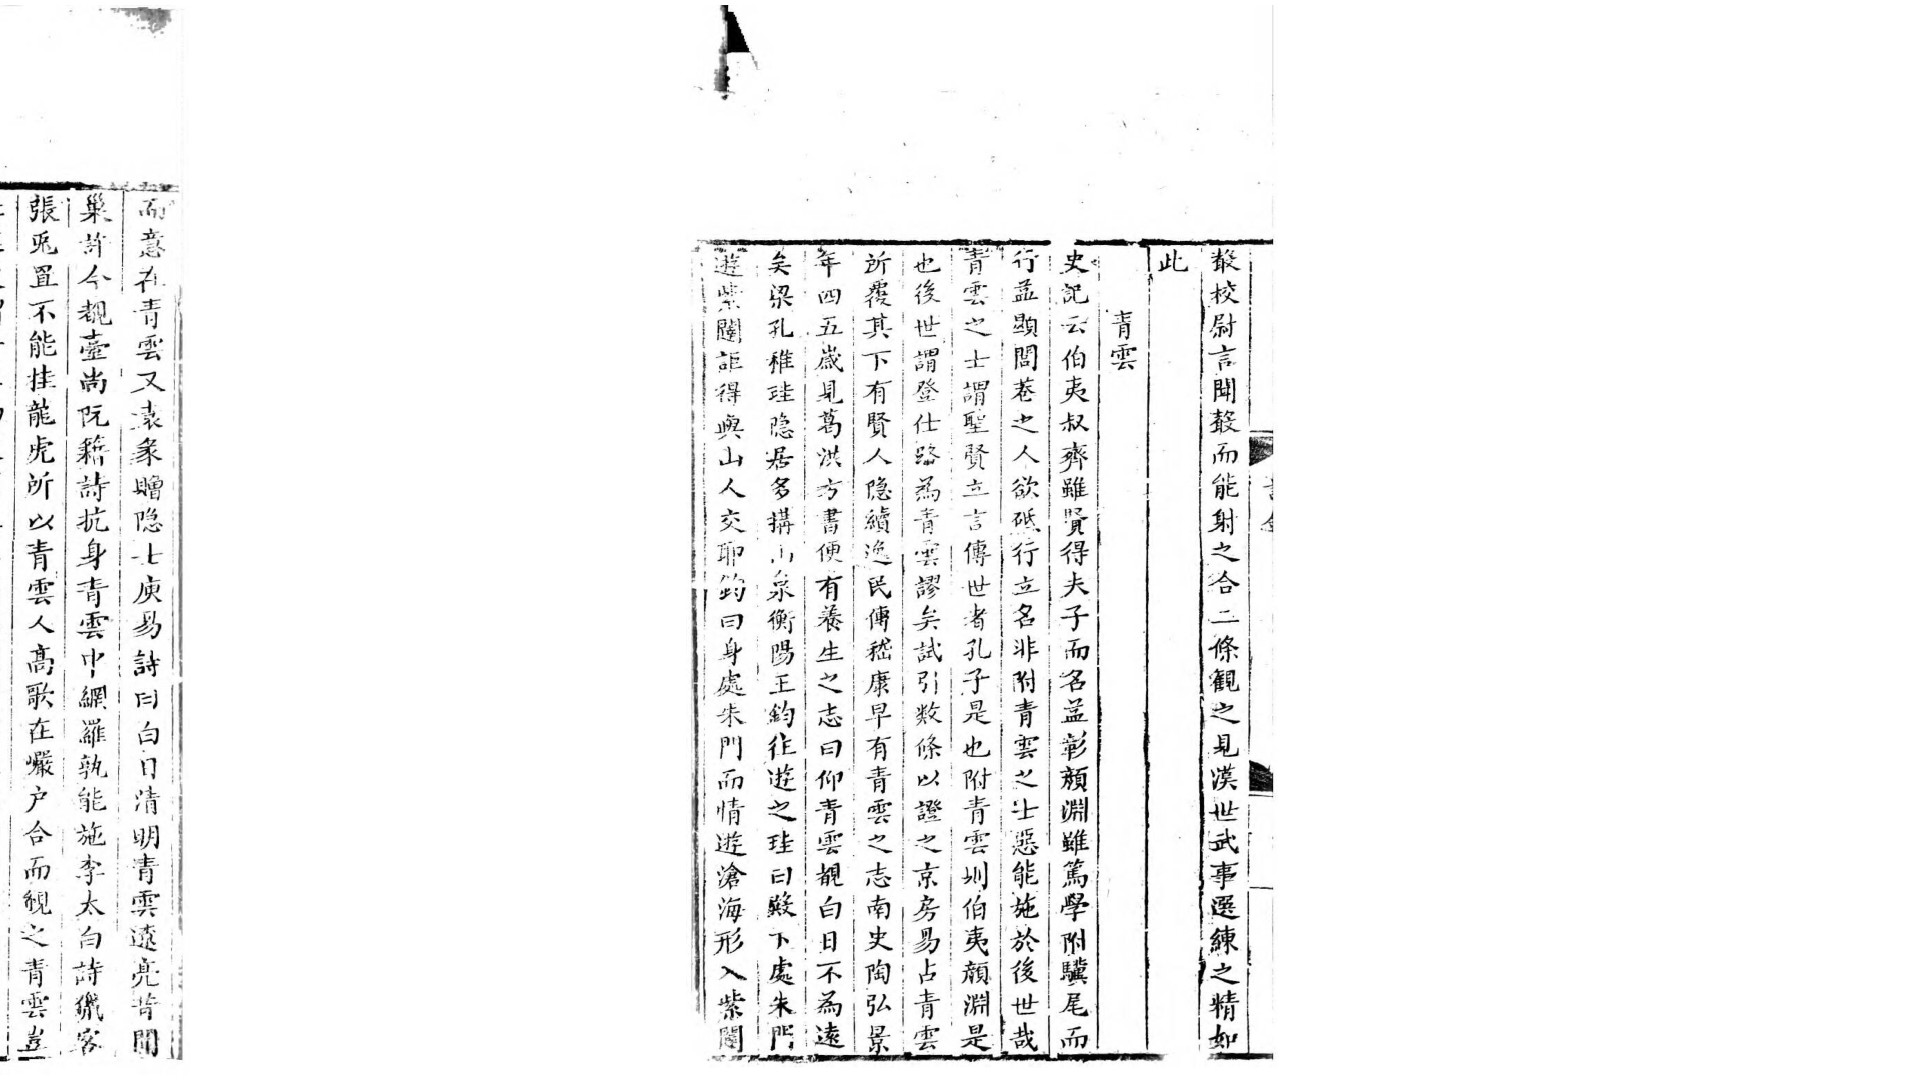 彀校尉言聞彀而能射之合二條觀之見漢世武事選練之精如
此
青雲
史記云伯夷叔齊雖賢得夫子而名益彰顏淵雖篤學附驥尾而
行益顯閭巷之人欲砥行立名非附青雲之士惡能施於後世哉
青雲之士謂聖賢立言傳世者孔子是也附青雲則伯夷顏淵是
也後世謂登仕路為青雲謬矣試引數條以證之京房易占青雲
所覆其下有賢人隱續逸民傳嵇康早有青雲之志南史陶弘景
年四五歲見葛洪方書便有養生之志曰仰青雲覩白日不為遠
矣梁孔稚珪隱居多搆山泉衡陽王鈞往遊之珪曰殿下處朱門
遊紫闥詎得與山人交耶鈞曰身處朱門而情遊滄海形入紫闥
而意在青雲又袁彖贈隱士庾易詩曰白日清明青雲遠亮昔聞
巢許今覩臺尚阮籍詩抗身青雲中網羅孰能施李太白詩獵客
張兎罝不能挂龍虎所以青雲人高歌在巖户合而觀之青雲豈